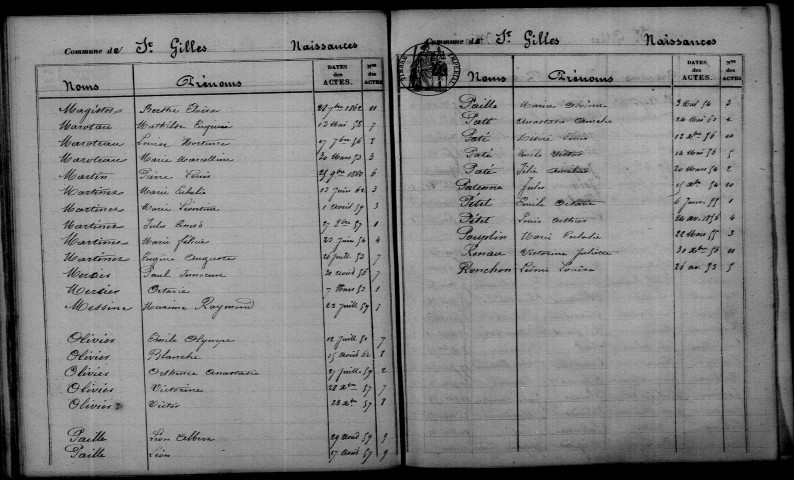 Commune de St. Gilles Naissances
Noms Prénoms DATES des ACTES. Nos des ACTES.
Magister Berthe Eloïse 28 7bre 1862 11
Maroteau Mathilde Eugénie 13 Mai 58 7
Maroteau Louise Hortense 17 7bre 56 8
Maroteau Marie Marcelline 30 Mars 53 3
Martin Pierre Louis 25 9bre 1860 6
Martinet Marie Eulalie 13 Juin 62 3
Martinet Marie Léontine 1 Avril 59 3
Martinet Jules 27 8bre 57 1
Martinet Marie Félicie 23 Juin 54 4
Martinet Eugène Auguste 26 Juill 53 7
Mercier Paul Innocent 30 Août 56 7
Mercier Octavie 7 Mars 53 1
Messine Maxime Raymond 23 Juill 59 7
Olivier Emile Olympe 12 Juill 7
Olivier Blanche 15 Août 62 8
Olivier Anastasie 27 Juillt 59 2
Olivier Victorine 28 Xbre 57 7
Olivier Victor 28 Xbre 57 8
Paille Léon Albert 29 Août 59 9
Paille Léon 17 Août 57 9
Commune de St. Gilles Naissances
TIMBRE IMPERIAL
Noms Prénoms DATES des ACTES. Nos des ACTES.
Paille Maria 3 Mai 54 3
Paté Anastasie 24 Mai 60 2
Paté Louis 12 Xbre 56 10
Paté Emile Victor 14 Mai 56 5
Paté Félix 20 Mars 54 2
Jules 15 Xbre 54 10
Petit Emile 6 Janv. 55 1
Petit Louis Arthur 24 av. 1856 4
Pouplin Marie Eulalie 22 Mars 55 3
Renau Victorine Juliette 31 Xbre 56 11
Ronchon Léonie Louise 26 av. 53 5